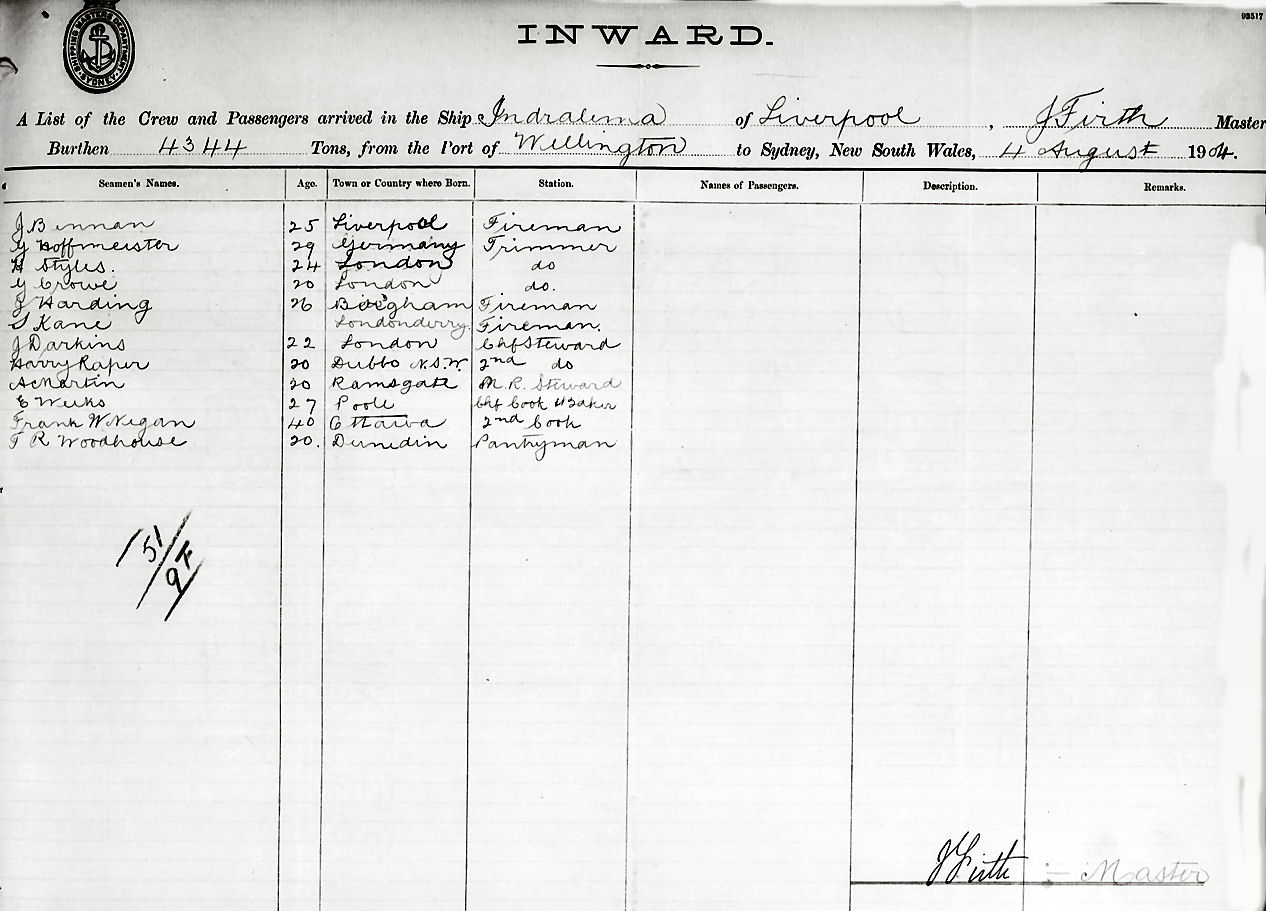 93517
SHIPPING MASTER'S DEPARTMENT SYDNEY
INWARD.
A List of the Crew and Passengers arrived in the Ship Indralema of Liverpool, J Firth Master
Burthen 4344 Tons, from the Port of Wellington to Sydney, New South Wales, 4 August 1904.
Seamen's Names. Age. Town or Country where Born. Station. Names of Passengers. Description. Remarks.
J Bennan 25 Liverpool Fireman
G Hoffmeister 29 Germany Trimmer
H Styles. 24 London do
G Crowe 20 London do.
J Harding 26 Fireman
S Kane Londonderry. Fireman.
J Darkins 22 London Chf Steward
Harry Raper 20 Dubbo N.S.W. 2nd do
A Martin 20 Ramsgate M.R. Steward
E Weeks 27 Poole Chf Cook & Baker
Frank W Negan 40 Ottawa 2nd Cook
T R Woodhouse 20. Dunedin Pantryman
51
J Firth - Master